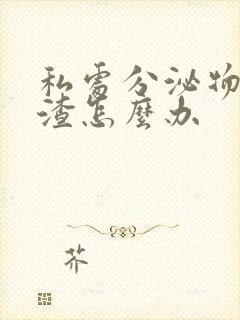 私處分泌物
渣怎麼办
芥